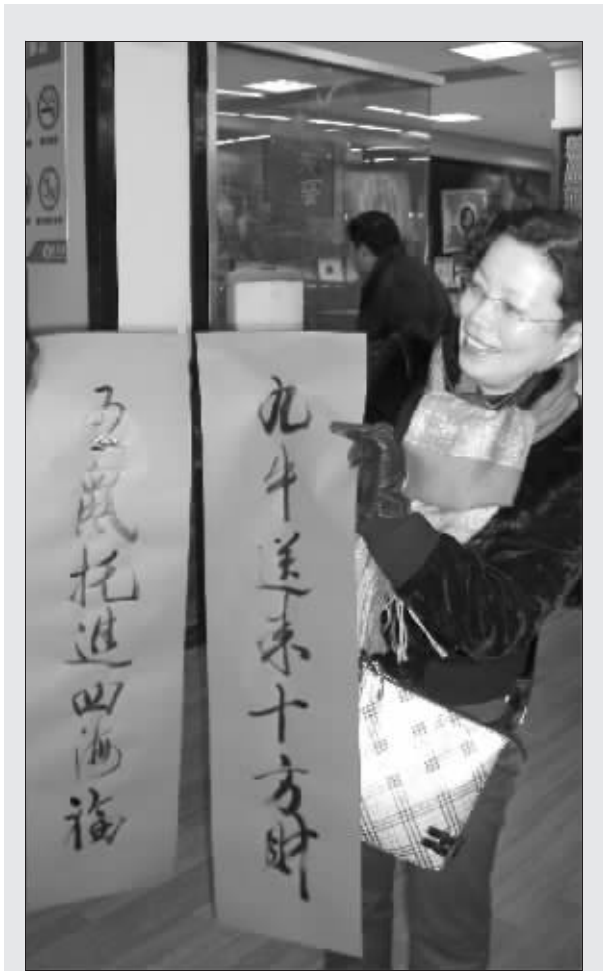 九牛送来十方財
五鼠托進四海福